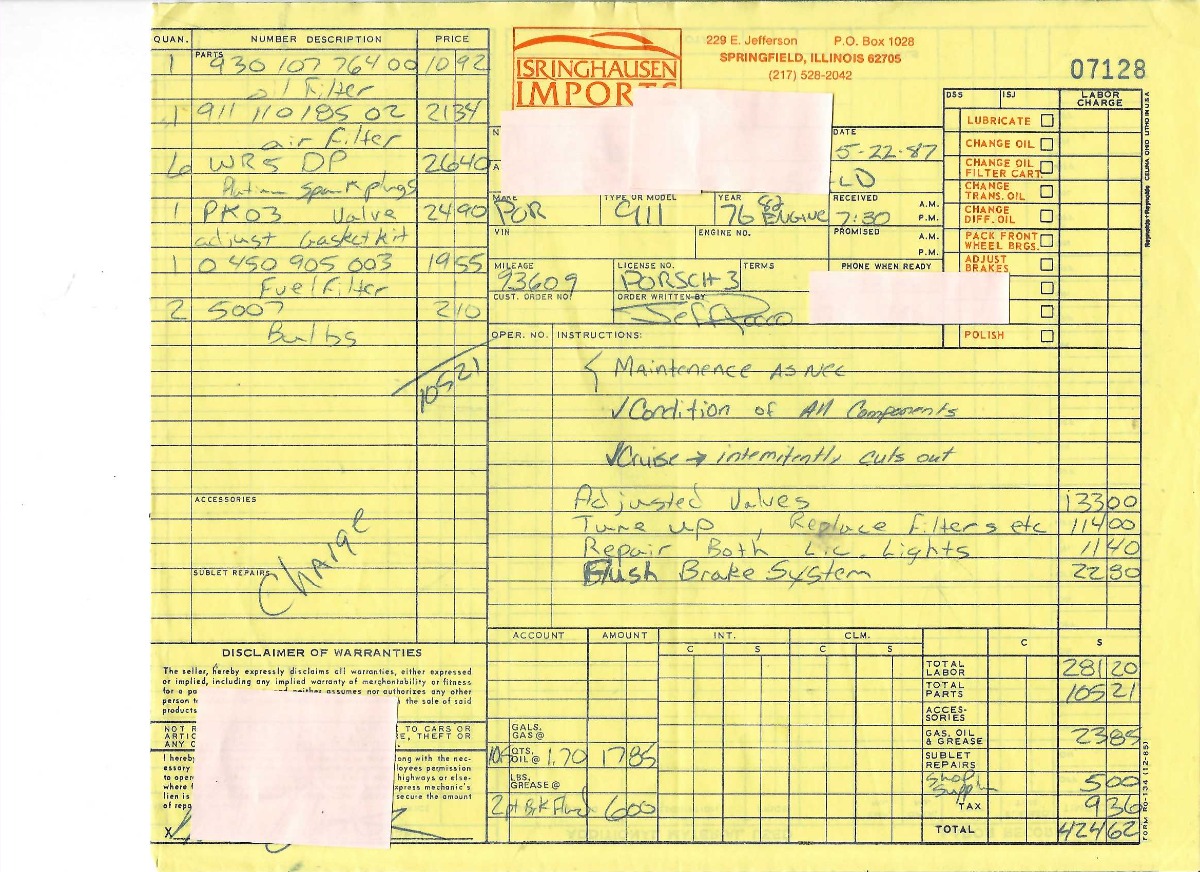 QUAN. NUMBER DESCRIPTION PRICE
PARTS
1 930 107 764 00 10 92
oil Filter
1 911 110 185 02 21 34
air Filter
6 WR5 DP 26 40
Platinum Spark plugs
1 PK03 Valve 24 90
adjust Gasket kit
1 0 450 905 003 19 55
Fuel Filter
2 5007 2 10
Bulbs
105 21
ACCESSORIES
Charge
SUBLET REPAIRS
DISCLAIMER OF WARRANTIES
The seller, hereby expressly disclaims all warranties, either expressed
or implied, including any implied warranty of merchantability or fitness
for a p and neither assumes nor authorizes any other
person t the sale of said
products
NOT R E TO CARS OR
ARTIC RE, THEFT OR
ANY C L.
I hereby long with the nec-
essary loyees permission
to oper highways or else-
where xpress mechanic's
lien is secure the amount
of repa
X
ISRINGHAUSEN
IMPORTS
229 E. Jefferson P.O. Box 1028
SPRINGFIELD, ILLINOIS 62705
(217) 528-2042
07128
N
A
DATE
5-22-87
LD
MAKE TYPE OR MODEL YEAR RECEIVED A.M.
POR 911 76 82 ENGINE 7:30 P.M.
VIN ENGINE NO. PROMISED A.M.
P.M.
MILEAGE LICENSE NO. TERMS PHONE WHEN READY
93609 PORSCH 3
CUST. ORDER NO. ORDER WRITTEN BY
DSS ISJ LABOR CHARGE
LUBRICATE
CHANGE OIL
CHANGE OIL
FILTER CART.
CHANGE
TRANS. OIL
CHANGE
DIFF. OIL
PACK FRONT
WHEEL BRGS.
ADJUST
BRAKES
POLISH
Reynolds+Reynolds CELINA, OHIO LITHO IN U.S.A.
OPER. NO. INSTRUCTIONS:
Maintenence AS NEC
✓Condition of All Components
✓Cruise → intemitently cuts out
Adjusted Valves 133 00
Tune up , Replace Filters etc 114 00
Repair Both Lic. Lights 11 40
Flush Brake System 22 80
ACCOUNT AMOUNT INT. CLM. C S
C S C S
TOTAL LABOR 281 20
TOTAL PARTS 105 21
ACCES-SORIES
GALS. GAS @
GAS, OIL & GREASE 23 85
10.5 QTS. OIL @ 1.70 17 85
SUBLET REPAIRS
LBS. GREASE @
Shop Supplies 5 00
2pt Brk Fluid 6 00
TAX 9 36
TOTAL 424 62
FORM RO-134 (12-85)